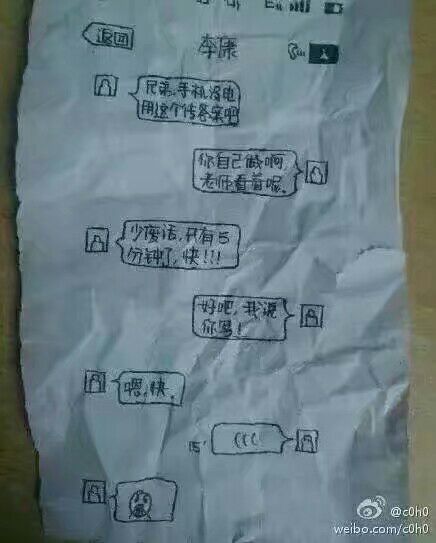 返回
李康
兄弟,手机没电
用这个传答案吧
你自己做啊
老师看着呢。
少废话,只有5
分钟了,快!!!
好吧,我说
你写!
嗯,快。
15"
(((
@c0h0
weibo.com/c0h0